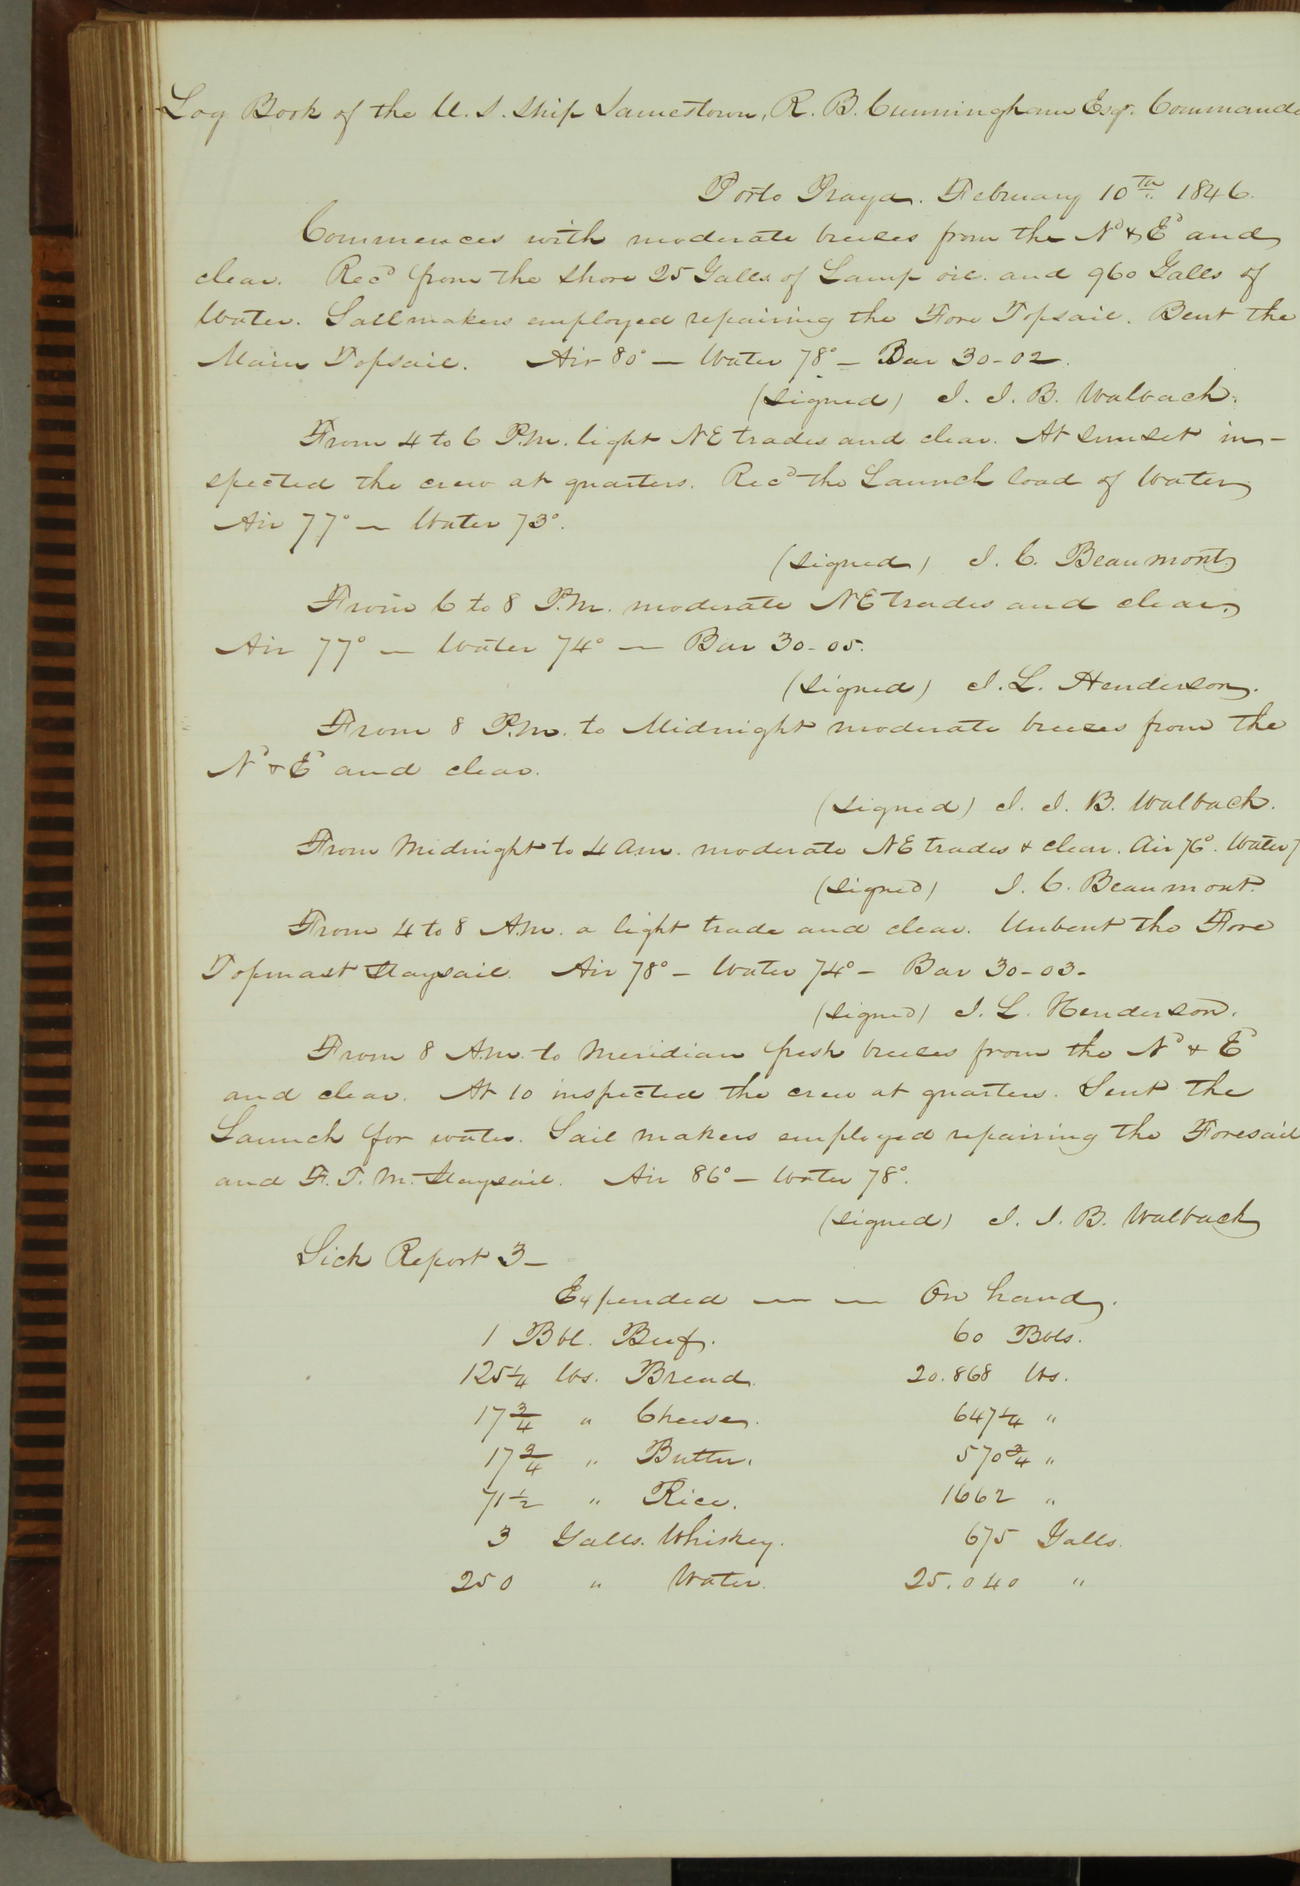 Log Book of the U. S. Ship Jamestown, R. B. Cunningham Esqr. Commande
Porto Praya. February 10th 1846.
Commences with moderate breezes from the Nd & Ed and
clear. Recd from the shore 25 Galls of Lamp oil. and 960 Galls of
Water. Sailmakers employed repairing the Fore Topsail. Bent the
Main Topsail. Air 80° — Water 78° — Bar 30-02.
(Signed) J. J. B. Walbach.
From 4 to 6 P.M. light NE trades and clear. At sunset in-
spected the crew at quarters. Recd the Launch load of Water
Air 77° — Water 73°.
(Signed) J. C. Beaumont
From 6 to 8 P.M. moderate NE trades and clear.
Air 77° — Water 74° — Bar 30-05.
(Signed) J. L. Henderson.
From 8 P.M. to Midnight moderate breezes from the
Nd & Ed and clear.
(Signed) J. J. B. Walbach.
From Midnight to 4 A.M. moderate NE trades & clear. Air 76°. Water 7
(Signed) J. C. Beaumont.
From 4 to 8 A.M. a light trade and clear. Unbent the Fore
Topmast Staysail. Air 78° — Water 74° — Bar 30-03-
(Signed) J. L. Henderson.
From 8 A.M. to Meridian fresh breezes from the Nd & Ed
and clear. At 10 inspected the crew at quarters. Sent the
Launch for water. Sail makers employed repairing the Foresail
and F. T. M. Staysail. Air 86° — Water 78°.
(Signed) J. J. B. Walbach
Sick Report 3—
Expended — — On hand.
1 Bbl. Beef. 60 Bbls.
125 1/4 lbs. Bread. 20.868 lbs.
17 3/4 " Cheese. 647 1/4 "
17 3/4 " Butter. 570 3/4 "
71 1/2 " Rice. 1662 "
3 Galls. Whiskey. 675 Galls.
250 " Water. 25.040 "